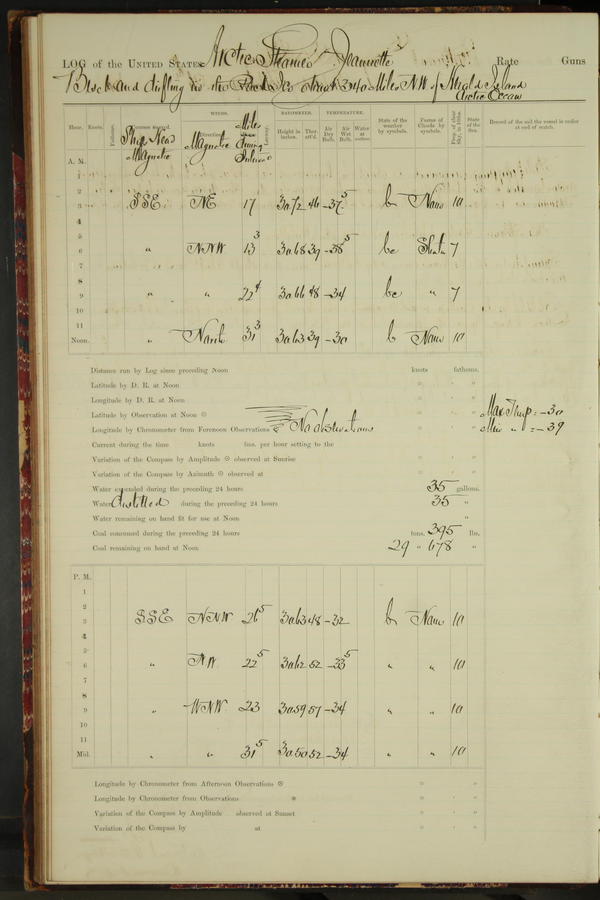 LOG of the UNITED STATES Arctic Steamer "Jeannette" Rate Guns
Block and drifting in the Pack Ice about 340 Miles NW of Herald Island
Arctic Ocean
Hour. Knots. Fathoms. Courses steered. WINDS. Direction. Leeway. BAROMETER. Height in inches. Ther. att'd. TEMPERATURE. Air Dry Bulb. Air Wet Bulb. Water at surface. State of the weather by symbols. Forms of Clouds by symbols. Prop. of clear Sky, in 10ths. State of the Sea. Record of the sail the vessel is under at end of watch.
Ships Head Magnetic Magnetic Miles during Interval
A. M.
1
2
3 SSE NE 17 30.72 46 -37.5 b None 10
4
5
6 " NNW 13.3 30.68 39 -38.5 bc Strata 7
7
8
9 " " 22.4 30.66 48 -34 bc " 7
10
11
Noon. " North 31.3 30.63 39 -30 b None 10
Distance run by Log since preceding Noon knots fathoms.
Latitude by D. R. at Noon ° ' "
Longitude by D. R. at Noon ° ' "
Latitude by Observation at Noon ° ' " Max Temp = -30
Longitude by Chronometer from Forenoon Observations No observations ° ' " Min " = -39
Current during the time knots fms. per hour setting to the
Variation of the Compass by Amplitude observed at Sunrise ° ' "
Variation of the Compass by Azimuth observed at ° ' "
Water expended during the preceding 24 hours 35 gallons.
Water distilled during the preceding 24 hours 35 "
Water remaining on hand fit for use at Noon "
Coal consumed during the preceding 24 hours tons. 395 lbs.
Coal remaining on hand at Noon 29 " 678 "
P. M.
1
2
3 SSE NNW 26.5 30.63 48 -32 b None 10
4
5
6 " NW 22.5 30.62 52 -33.5 " " 10
7
8
9 " WNW 23 30.59 57 -34 " " 10
10
11
Mid. " " 31.5 30.50 52 -34 " " 10
Longitude by Chronometer from Afternoon Observations ° ' "
Longitude by Chronometer from Observations ° ' "
Variation of the Compass by Amplitude observed at Sunset ° ' "
Variation of the Compass by at ° ' "